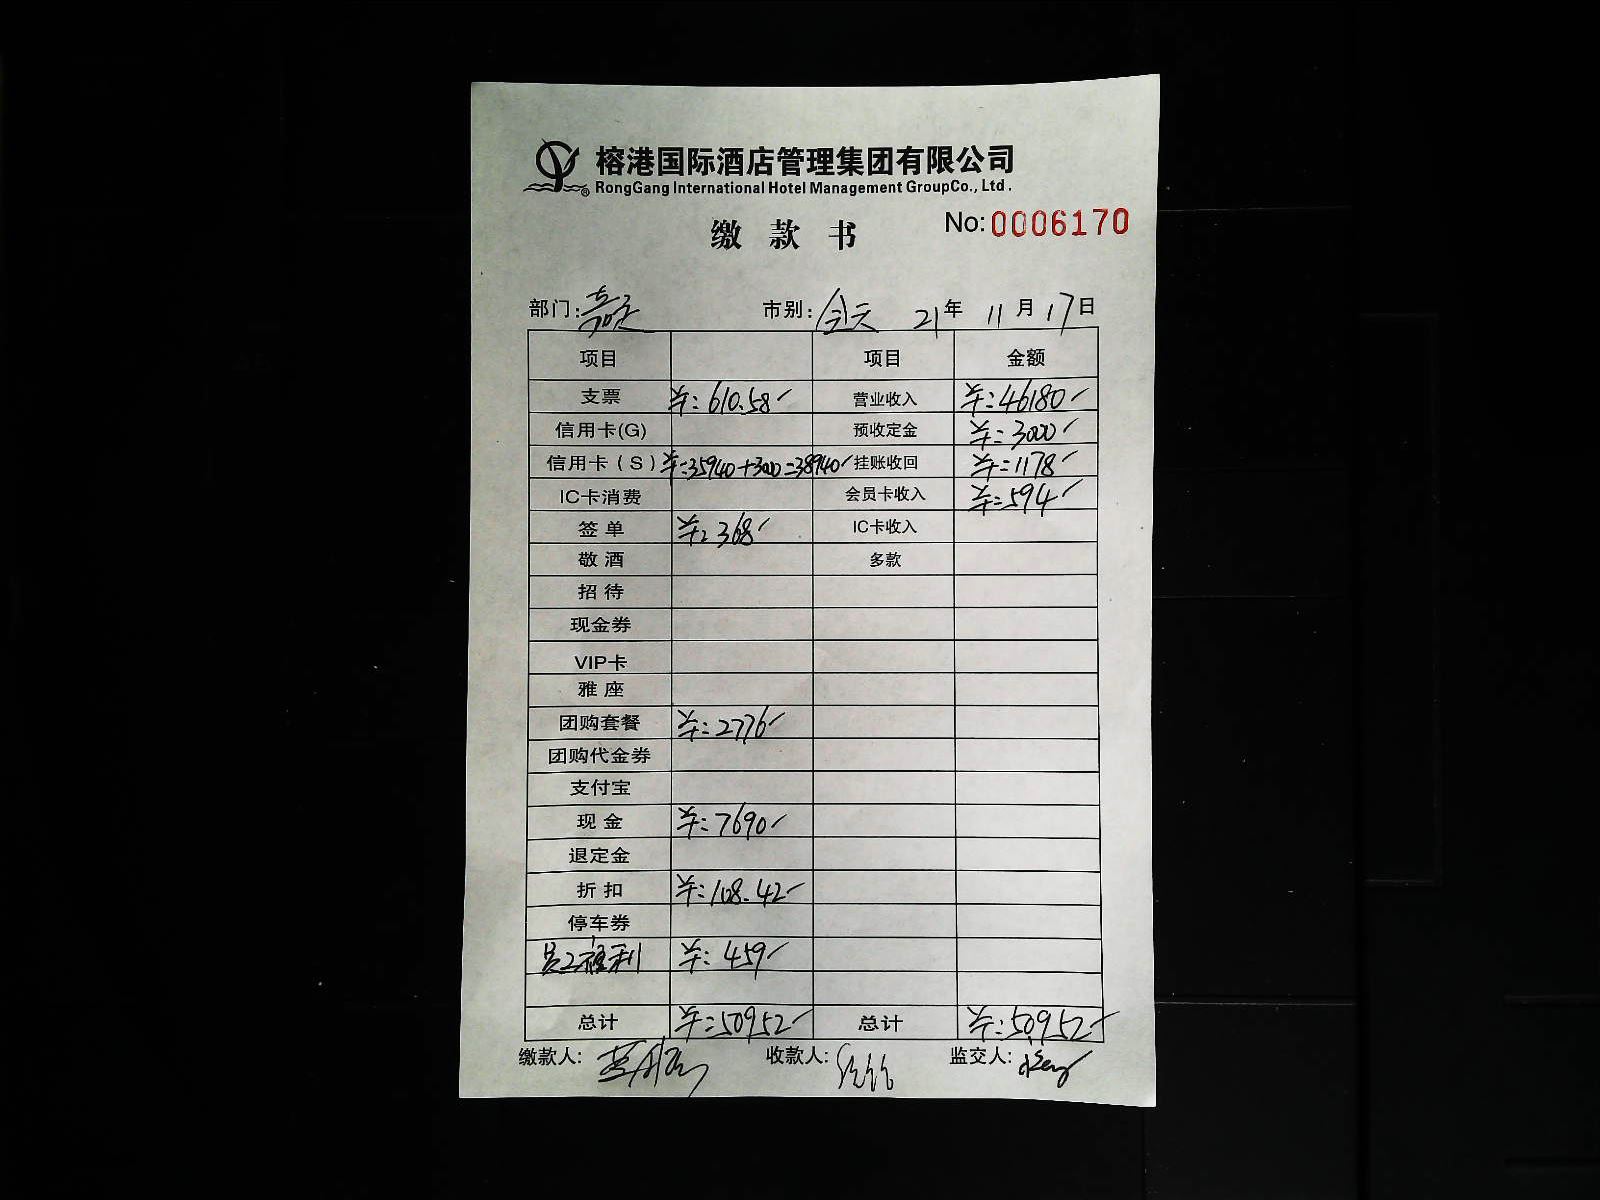 榕港国际酒店管理集团有限公司
® RongGang International Hotel Management GroupCo., Ltd.
缴款书 No:0006170
部门: 市别:全天 21年 11月17日
项目 项目 金额
支票 ¥:610.58 营业收入 ¥:46180
信用卡(G) 预收定金 ¥:3000
信用卡(S) ¥:35940+3000=38940 挂账收回 ¥:1178
IC卡消费 会员卡收入 ¥:594
签单 ¥:368 IC卡收入
敬酒 多款
招待
现金券
VIP卡
雅座
团购套餐 ¥:2776
团购代金券
支付宝
现金 ¥:7690
退定金
折扣 ¥:108.42
停车券
员工福利 ¥:459
总计 ¥:50952 总计 ¥:50952
缴款人: 收款人: 监交人: